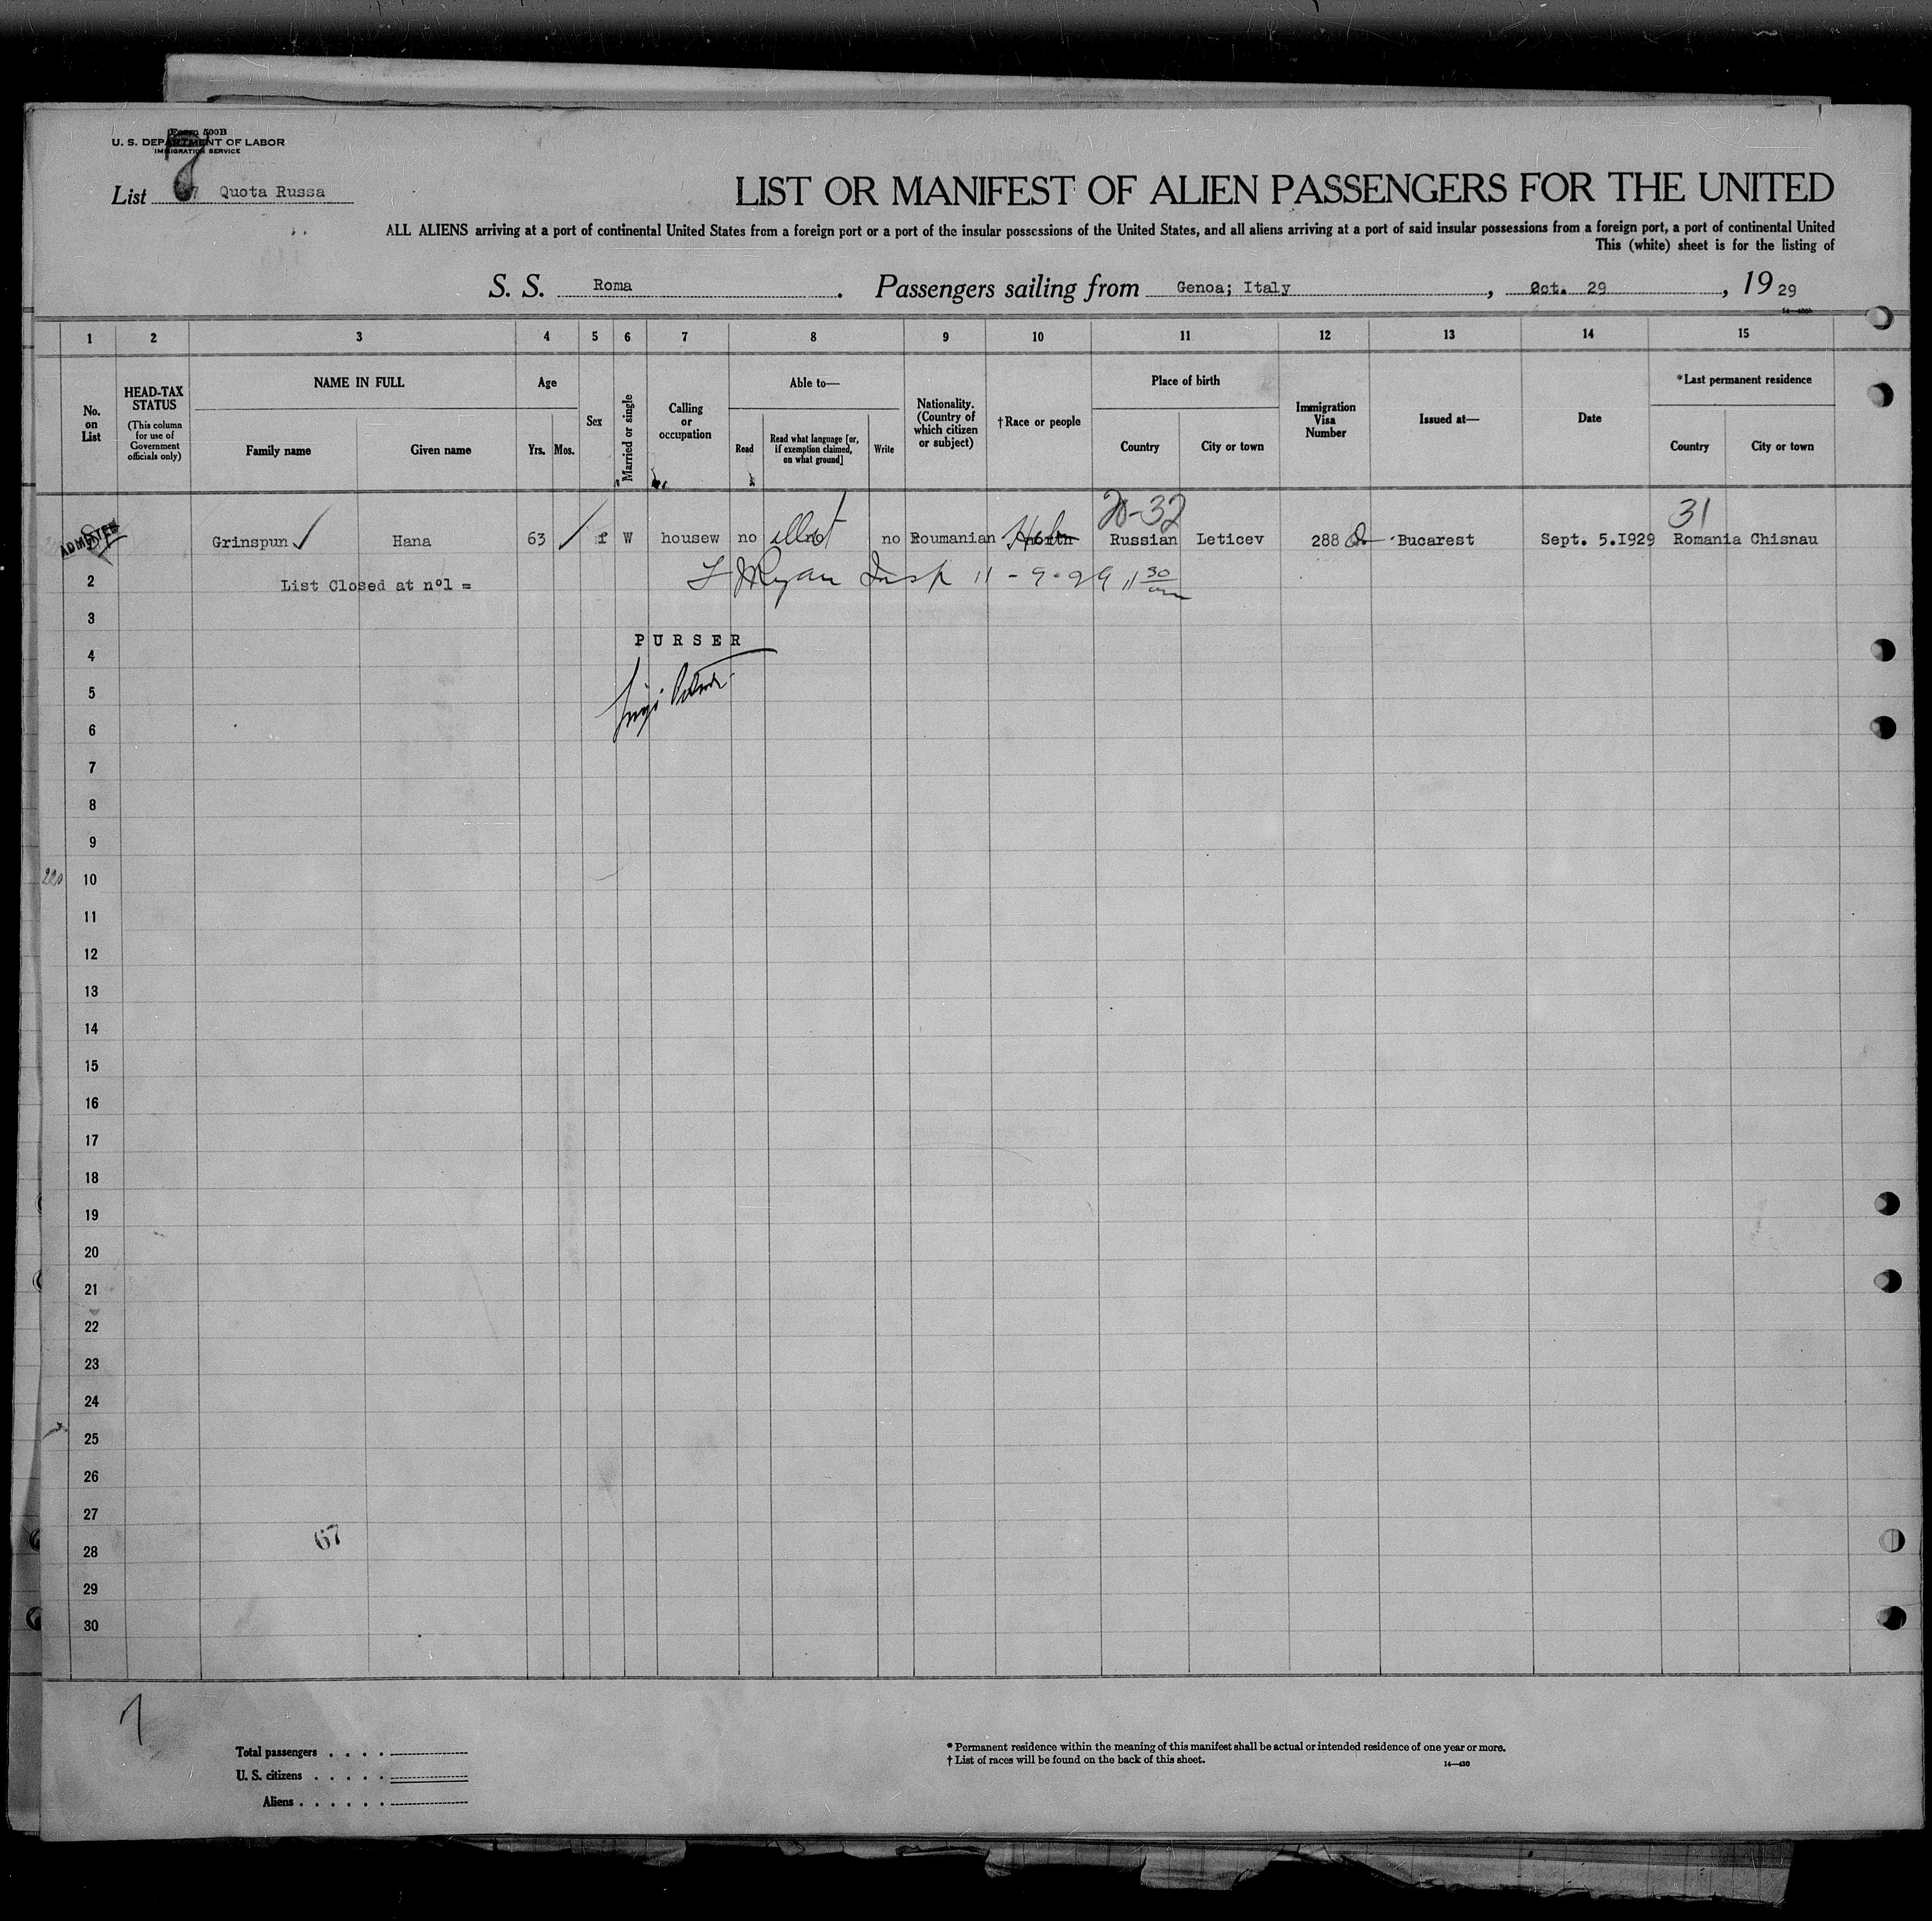 Form 500B
U. S. DEPARTMENT OF LABOR
IMMIGRATION SERVICE
7
List Quota Russa
LIST OR MANIFEST OF ALIEN PASSENGERS FOR THE UNITED
ALL ALIENS arriving at a port of continental United States from a foreign port or a port of the insular possessions of the United States, and all aliens arriving at a port of said insular possessions from a foreign port, a port of continental United
This (white) sheet is for the listing of
S. S. Roma. Passengers sailing from Genoa; Italy, Oct. 29, 1929
1 2 3 4 5 6 7 8 9 10 11 12 13 14 15
No. on List
HEAD-TAX STATUS
(This column for use of Government officials only)
NAME IN FULL
Family name
Given name
Age
Yrs.
Mos.
Sex
Married or single
Calling or occupation
Able to—
Read
Read what language [or, if exemption claimed, on what ground]
Write
Nationality. (Country of which citizen or subject)
†Race or people
Place of birth
Country
City or town
Immigration Visa Number
Issued at—
Date
*Last permanent residence
Country
City or town
20-32
31
ADMITTED Grinspun Hana 63 f W housew no no no Roumanian Russian Leticev 288 Bucarest Sept. 5.I929 Romania Chisnau
2 List Closed at nº1 =
Ryan Insp 11-9-29 11 30 am
3
PURSER
4
5
6
7
8
9
220
10
11
12
13
14
15
16
17
18
19
20
21
22
23
24
25
26
27
67
28
29
30
Total passengers . . . .
U. S. citizens . . . . .
Aliens . . . . . .
* Permanent residence within the meaning of this manifest shall be actual or intended residence of one year or more.
† List of races will be found on the back of this sheet.
14—430